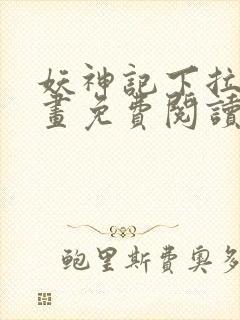 妖神記下拉
畫免費閱讀
鮑里斯費奧多